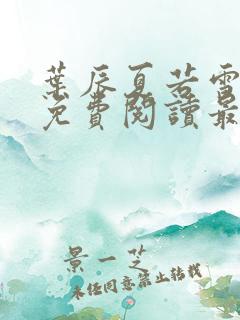 葉辰夏若雪
免費閱讀最
景一芝
未經同意禁止轉載